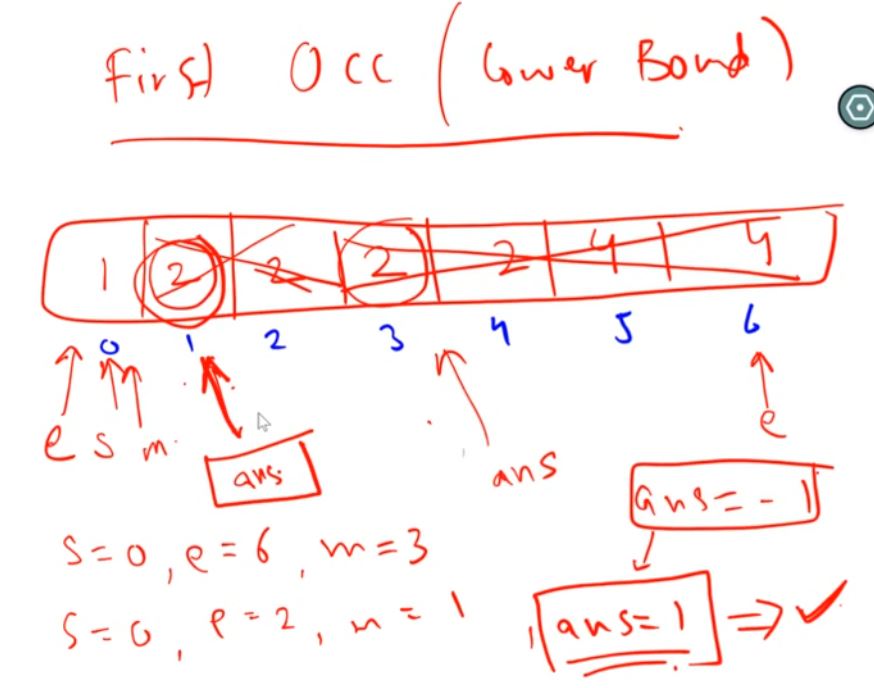 First Occ (Lower Bond)
1 2 2 2 2 4 4
0 1 2 3 4 5 6
e s m e
ans ans
ans = -1
s=0, e=6, m=3
s=0, e=2, m=1, ans=1 ⇒ ✓